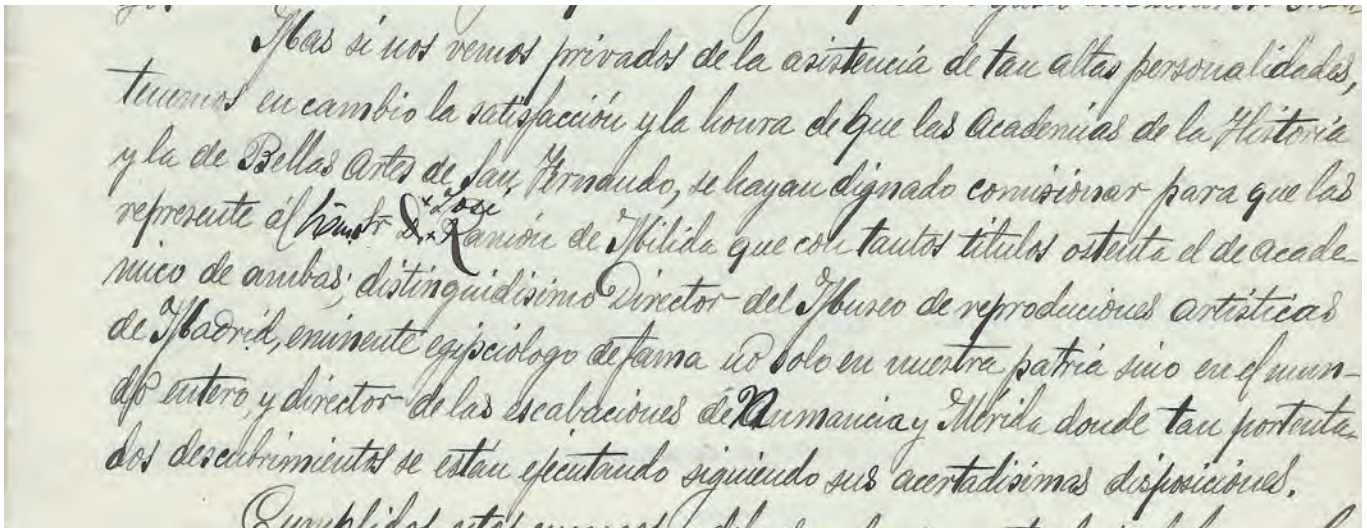 Mas si nos vemos privados de la asistencia de tan altas personalidades,
tenemos en cambio la satisfacción y la honra de que las Academias de la Historia
y la de Bellas Artes de San Fernando, se hayan dignado comisionar para que las
José
represente al Sr D. Ramón de Mélida que con tantos títulos ostenta el de acadé-
mico de ambas; distinguidisimo Director del Museo de reproduciones artísticas
de Madrid, eminente egipciologo de fama no solo en nuestra patria sino en el mun-
do entero, y director de las escabaciones de Numancia y Mérida donde tan portenta-
dos descubrimientos se están ejecutando siguiendo sus acertadisimas disposiciones.
Cumplidos estos